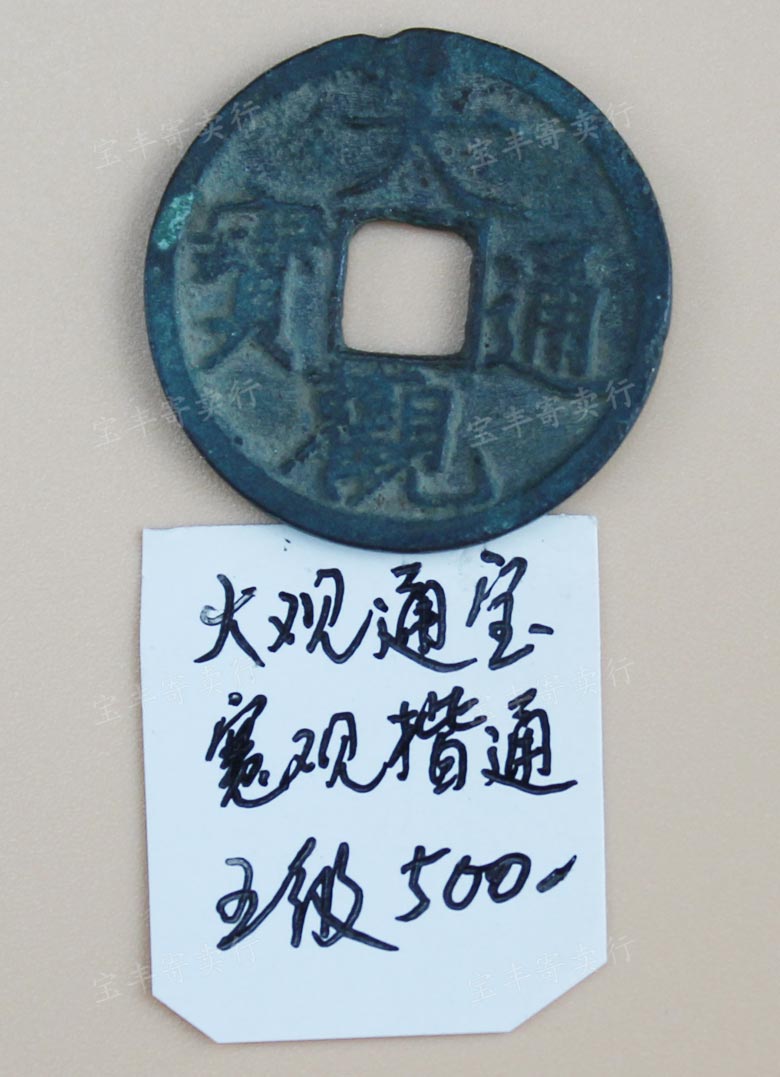 大觀通寶
大观通宝
宽观楷通
五级 500-
宝丰寄卖行
宝丰寄卖行
宝丰寄卖行
宝丰寄卖行
宝丰寄卖行
宝丰寄卖行
宝丰寄卖行
宝丰寄卖行